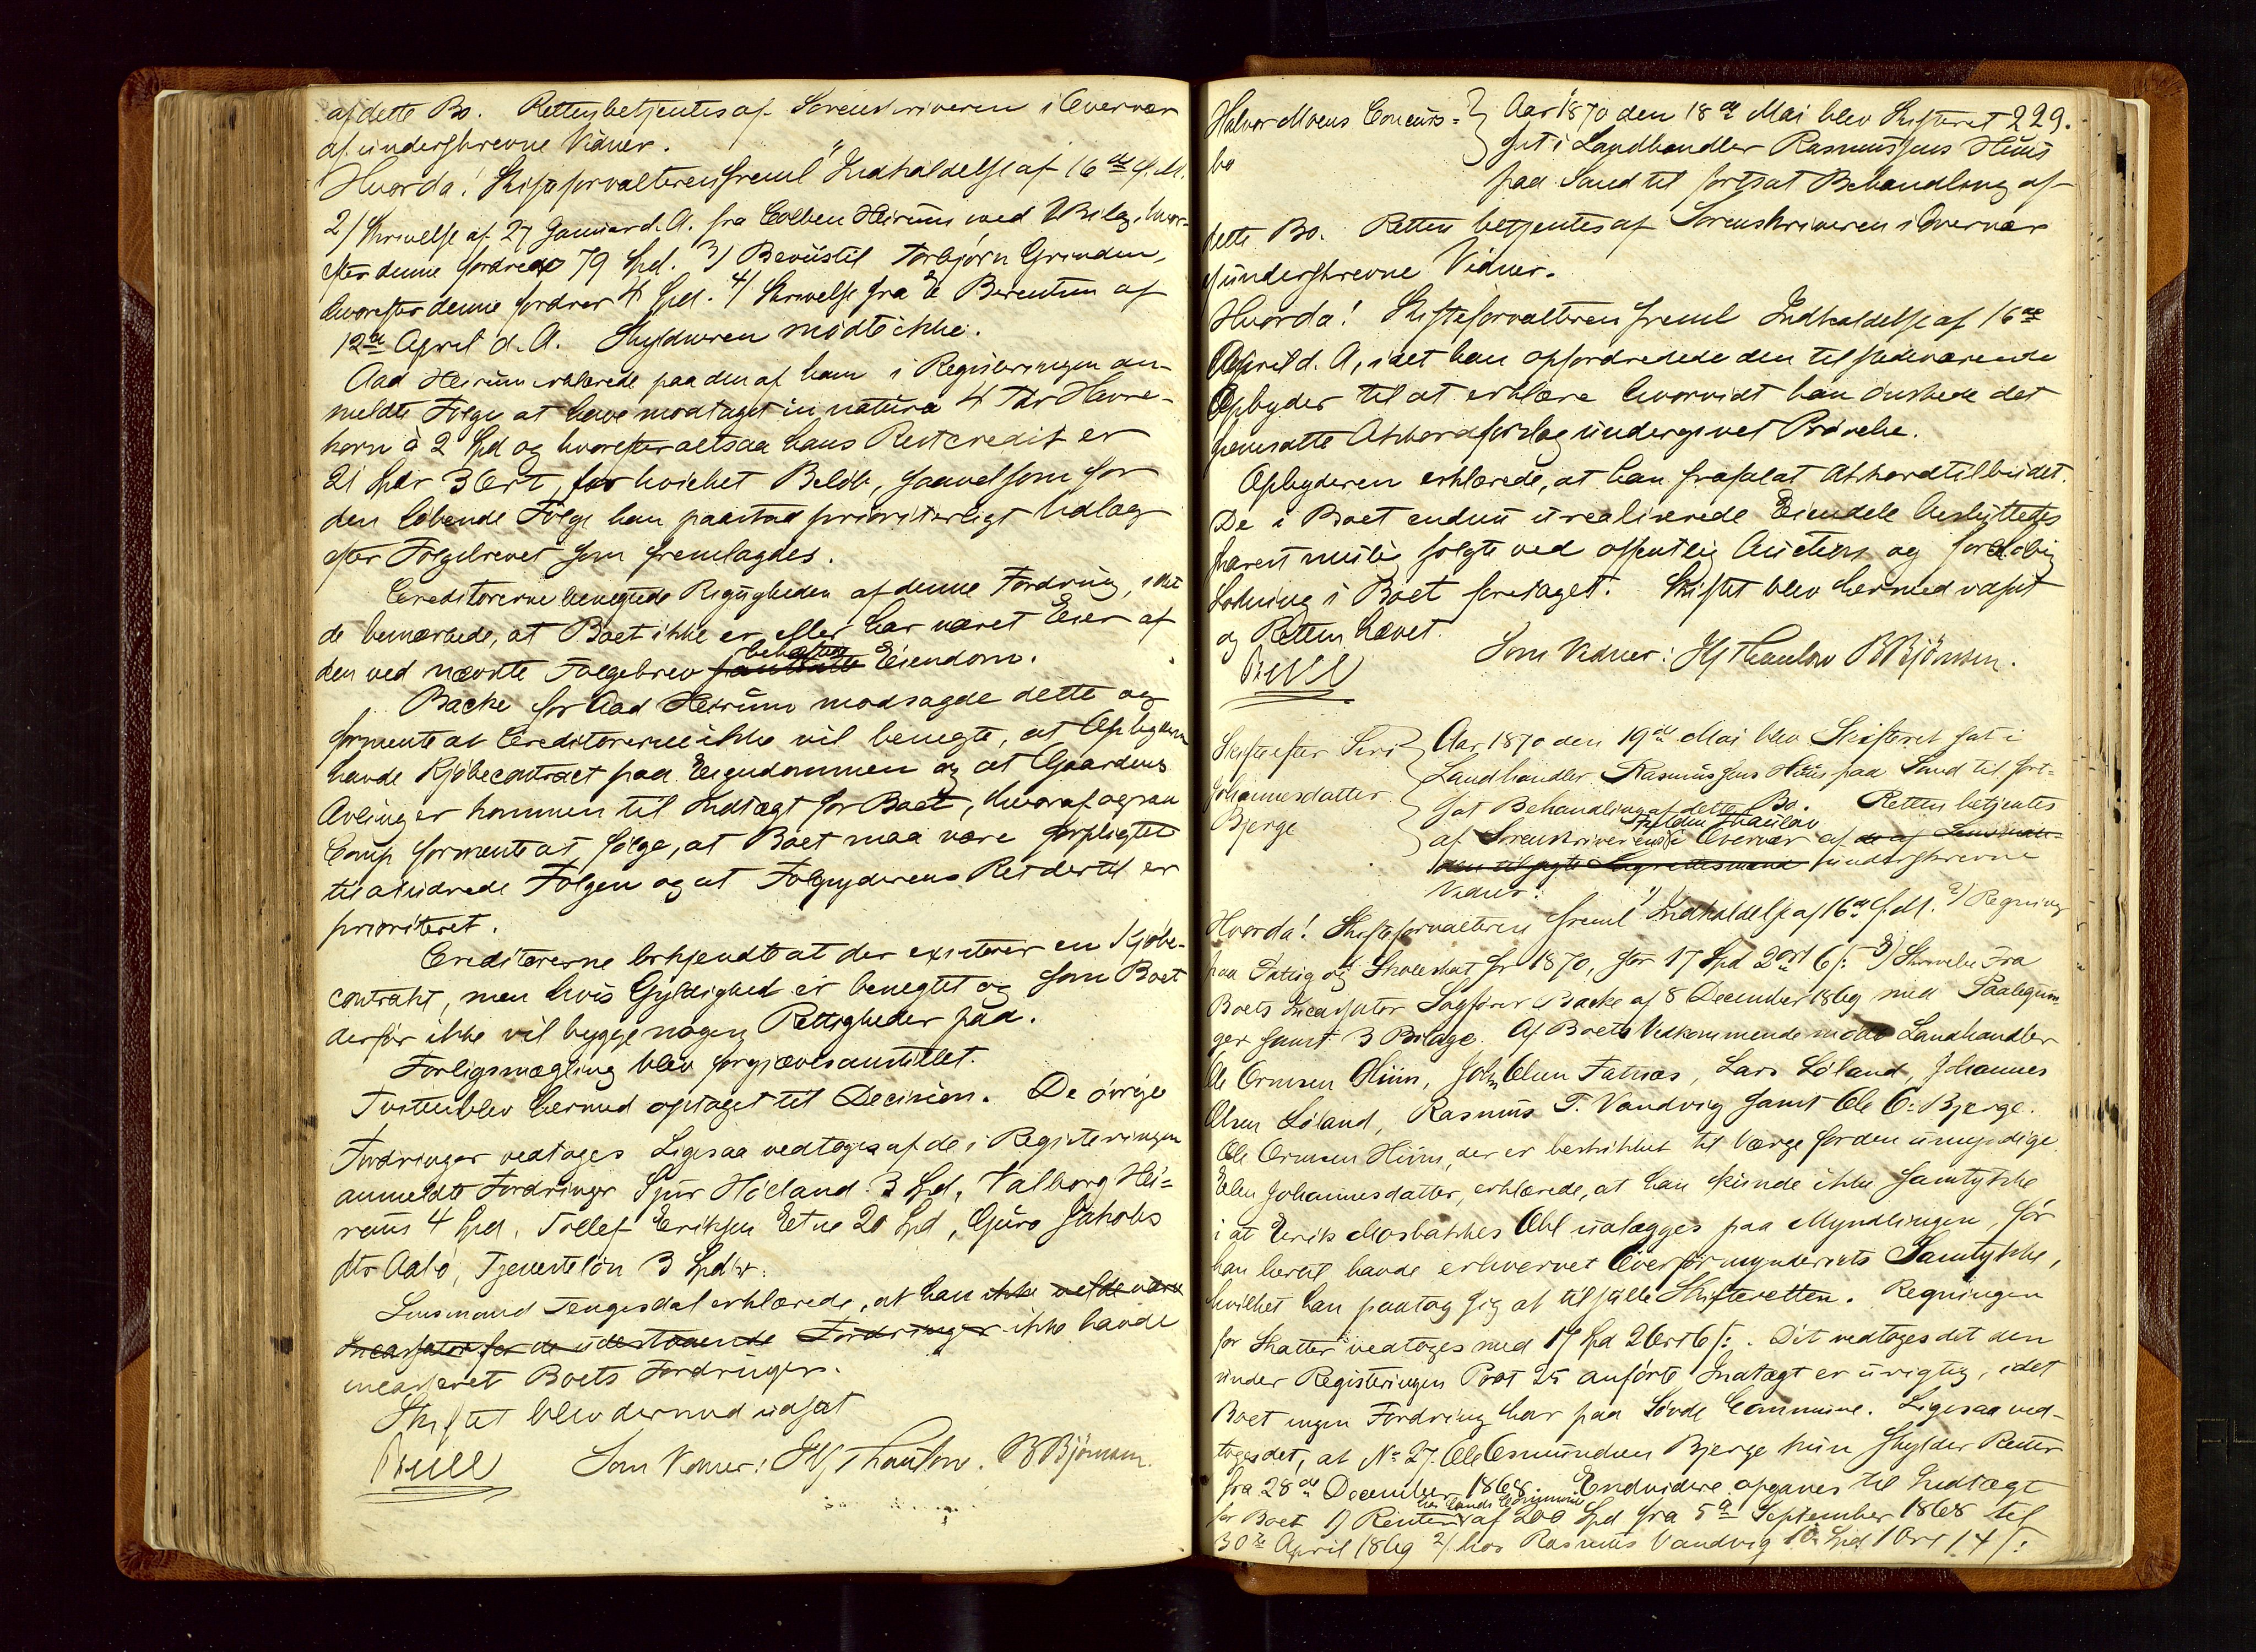 af dette Bo. Retten betjentes af Sorenskriveren i Overvær
af underskrevne Vidner.
Hvorda! Skifteforvalteren freml 1) Indkaldelse af 16de f. M.
2) Skrivelse af 27 Januar d. A. fra Colben Heirum med 1 Bilag, hvor-
efter denne fordrer 79 Spd. 3) Beviis til Torbjørn Grinden,
hvorefter denne fordrer 4 Spd. 4) Skrivelse fra E Berentsen af
12te April d. A. Skyldneren mødte ikke.
Aad Heirum erklærede paa den af ham i Registeringen an-
meldte Følge at have modtaget in natura 4 Tdr Havre-
korn à 2 Spd og hvorefter altsaa hans Restcredit er
21 Spdr 3 Ort, for hvilket Beløb, saavelsom for
den løbende Følge han paastod prioriterligt Udlæg
efter Følgebrevet som fremlagdes.
Creditorerne benegtede Rigtigheden af denne Fordring, idet
de bemærkede, at Boet ikke er eller har været Eier af
den ved nævnte Følgebrev behæftede Eiendom.
Backe for Aad Heirum modsagde dette og
formente at Creditorerne ikke vil benegte, at Opbyderen
havde Kjøbecontract paa Eiendommen og at Gaardens
Avling er kommen til Indtægt for Boet, hvoraf ogsaa
Comp formente at følge, at Boet maa være forpligtet
til at udrede Følgen og at Følgnyderens Ret dertil er
prioriteret.
Creditorerne erkjendte at der existerer en Kjøbe-
contrakt, men hvis Gyldighed er benegtet og som Boet
derfor ikke vil bygge nogen Rettigheder paa.
Forligsmægling blev forgjæves anstillet.
Tvisten blev hermed optaget til Decision. De øvrige
Fordringer vedtoges. Ligesaa vedtoges af de i Registeringen
anmeldte Fordringer Sjur Høiland 3 Spd, Valborg Hei-
rum 4 Spd, Tollef Eriksen Etne 20 Spd, Guro Jakobs
dtr Aabø, Tjenesteløn 3 Spdlr.
Lensmand Tengesdal erklærede, at han ikke vilde være
Incassator for de udestaaende Fordringer ikke havde
incasseret Boets Fordringer.
Skiftet blev dermed udsat
Som Vidner: HJ Thaulow. B Bjørnsen.
229.
Halvor Moens Concurs-
bo
Aar 1870 den 18de Mai blev Skifteret
sat i Landhandler Rasmussens Huus
paa Sand til fortsat Behandling af
dette Bo. Retten betjentes af Sorenskriveren i Overvær
af underskrevne Vidner.
Hvorda! Skifteforvalteren freml Indkaldelse af 16de
April d. A, idet han opfordrede den tilstedeværende
Opbyder til at erklære hvorvidt han ønskede det
fremsatte Akkordforslag undergivet Prøvelse.
Opbyderen erklærede, at han frafalt Akkordtilbudet.
De i Boet endnu urealiserede Eiendele besluttedes
snarest mulig solgte ved offentlig Auction og foreløbig
Lodning i Boet foretaget. Skiftet blev hermed udsat
og Retten hævet.
Som Vidner: HJ Thaulow B Bjørnsen.
Skifte efter Siri
Johannesdatter
Bjerge
Aar 1870 den 19de Mai blev Skifteret sat i
Landhandler Rasmussens Huus paa Sand til fort-
sat Behandling af dette Bo. Retten betjentes
af Sorenskriverens Fuldm Thaulov i Overvær af de af Lensman-
den tilsagte Lagrettesmænd underskrevne
Vidner.
Hvorda! Skifteforvalteren freml 1) Indkaldelse af 16de f. M. 2) Regning
paa Fattig og Skoleskat for 1870, stor 17 Spd 2 ort 6 s: 3) Skrivelse fra
Boets Incassator Sagfører Backe af 8 December 1869 med Paategnin-
ger samt 3 Bilage. Af Boets Vedkommende mødte Landhandler
Ole Ormsen Hiim, Johs Olsen Fatnæs, Lars Løland, Johannes
Olsen Løland, Rasmus T. Vandvig samt Ole O: Bjerge.
Ole Ormsen Hiim, der er beskikket til Værge for den umyndige
Elen Johannesdatter, erklærede, at han kunde ikke samtykke
i at Erik Mosbakkes Obl udlægges paa Myndlingen, før
han hertil havde erhvervet Overformynderiets Samtykke,
hvilket han paatog sig at tilstille Skifteretten. Regningen
for Skatter vedtoges med 17 Spd 2 Ort 6 s:. Dit vedtoges det den
under Registeringen Post 25 anførte Indtægt er urigtig, idet
Boet ingen Fordring har paa Søvde Commune. Ligesaa ved-
toges det, at No 27. Ole Osmundsen Bjerge kun skylder Renter
fra 28de December 1868. Endvidere opgaves til Indtægt
for Boet 1) Renten hos Sands Commune af 200 Spd fra 5te September 1868 til
30te April 1869 2) hos Rasmus Vandvig 10 Spd 1 Ort 14 s: